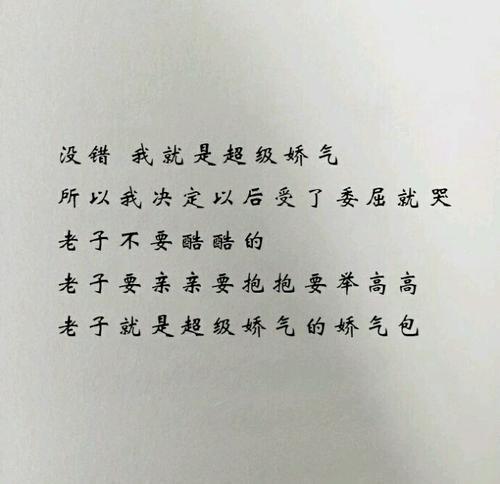 没错 我就是超级娇气
所以我决定以后受了委屈就哭
老子不要酷酷的
老子要亲亲要抱抱要举高高
老子就是超级娇气的娇气包